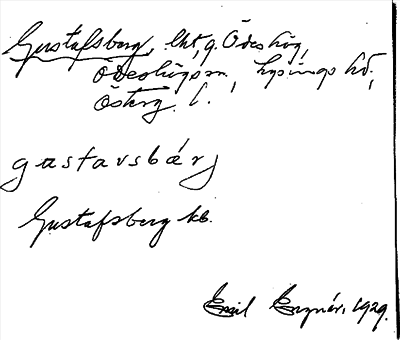 Gustafsberg, lht, g. Ödeshög,
Ödeshögs sn, Lysings hd,
Österg. l.
gastavsbárj
Gustafsberg kb.
Emil 1929.